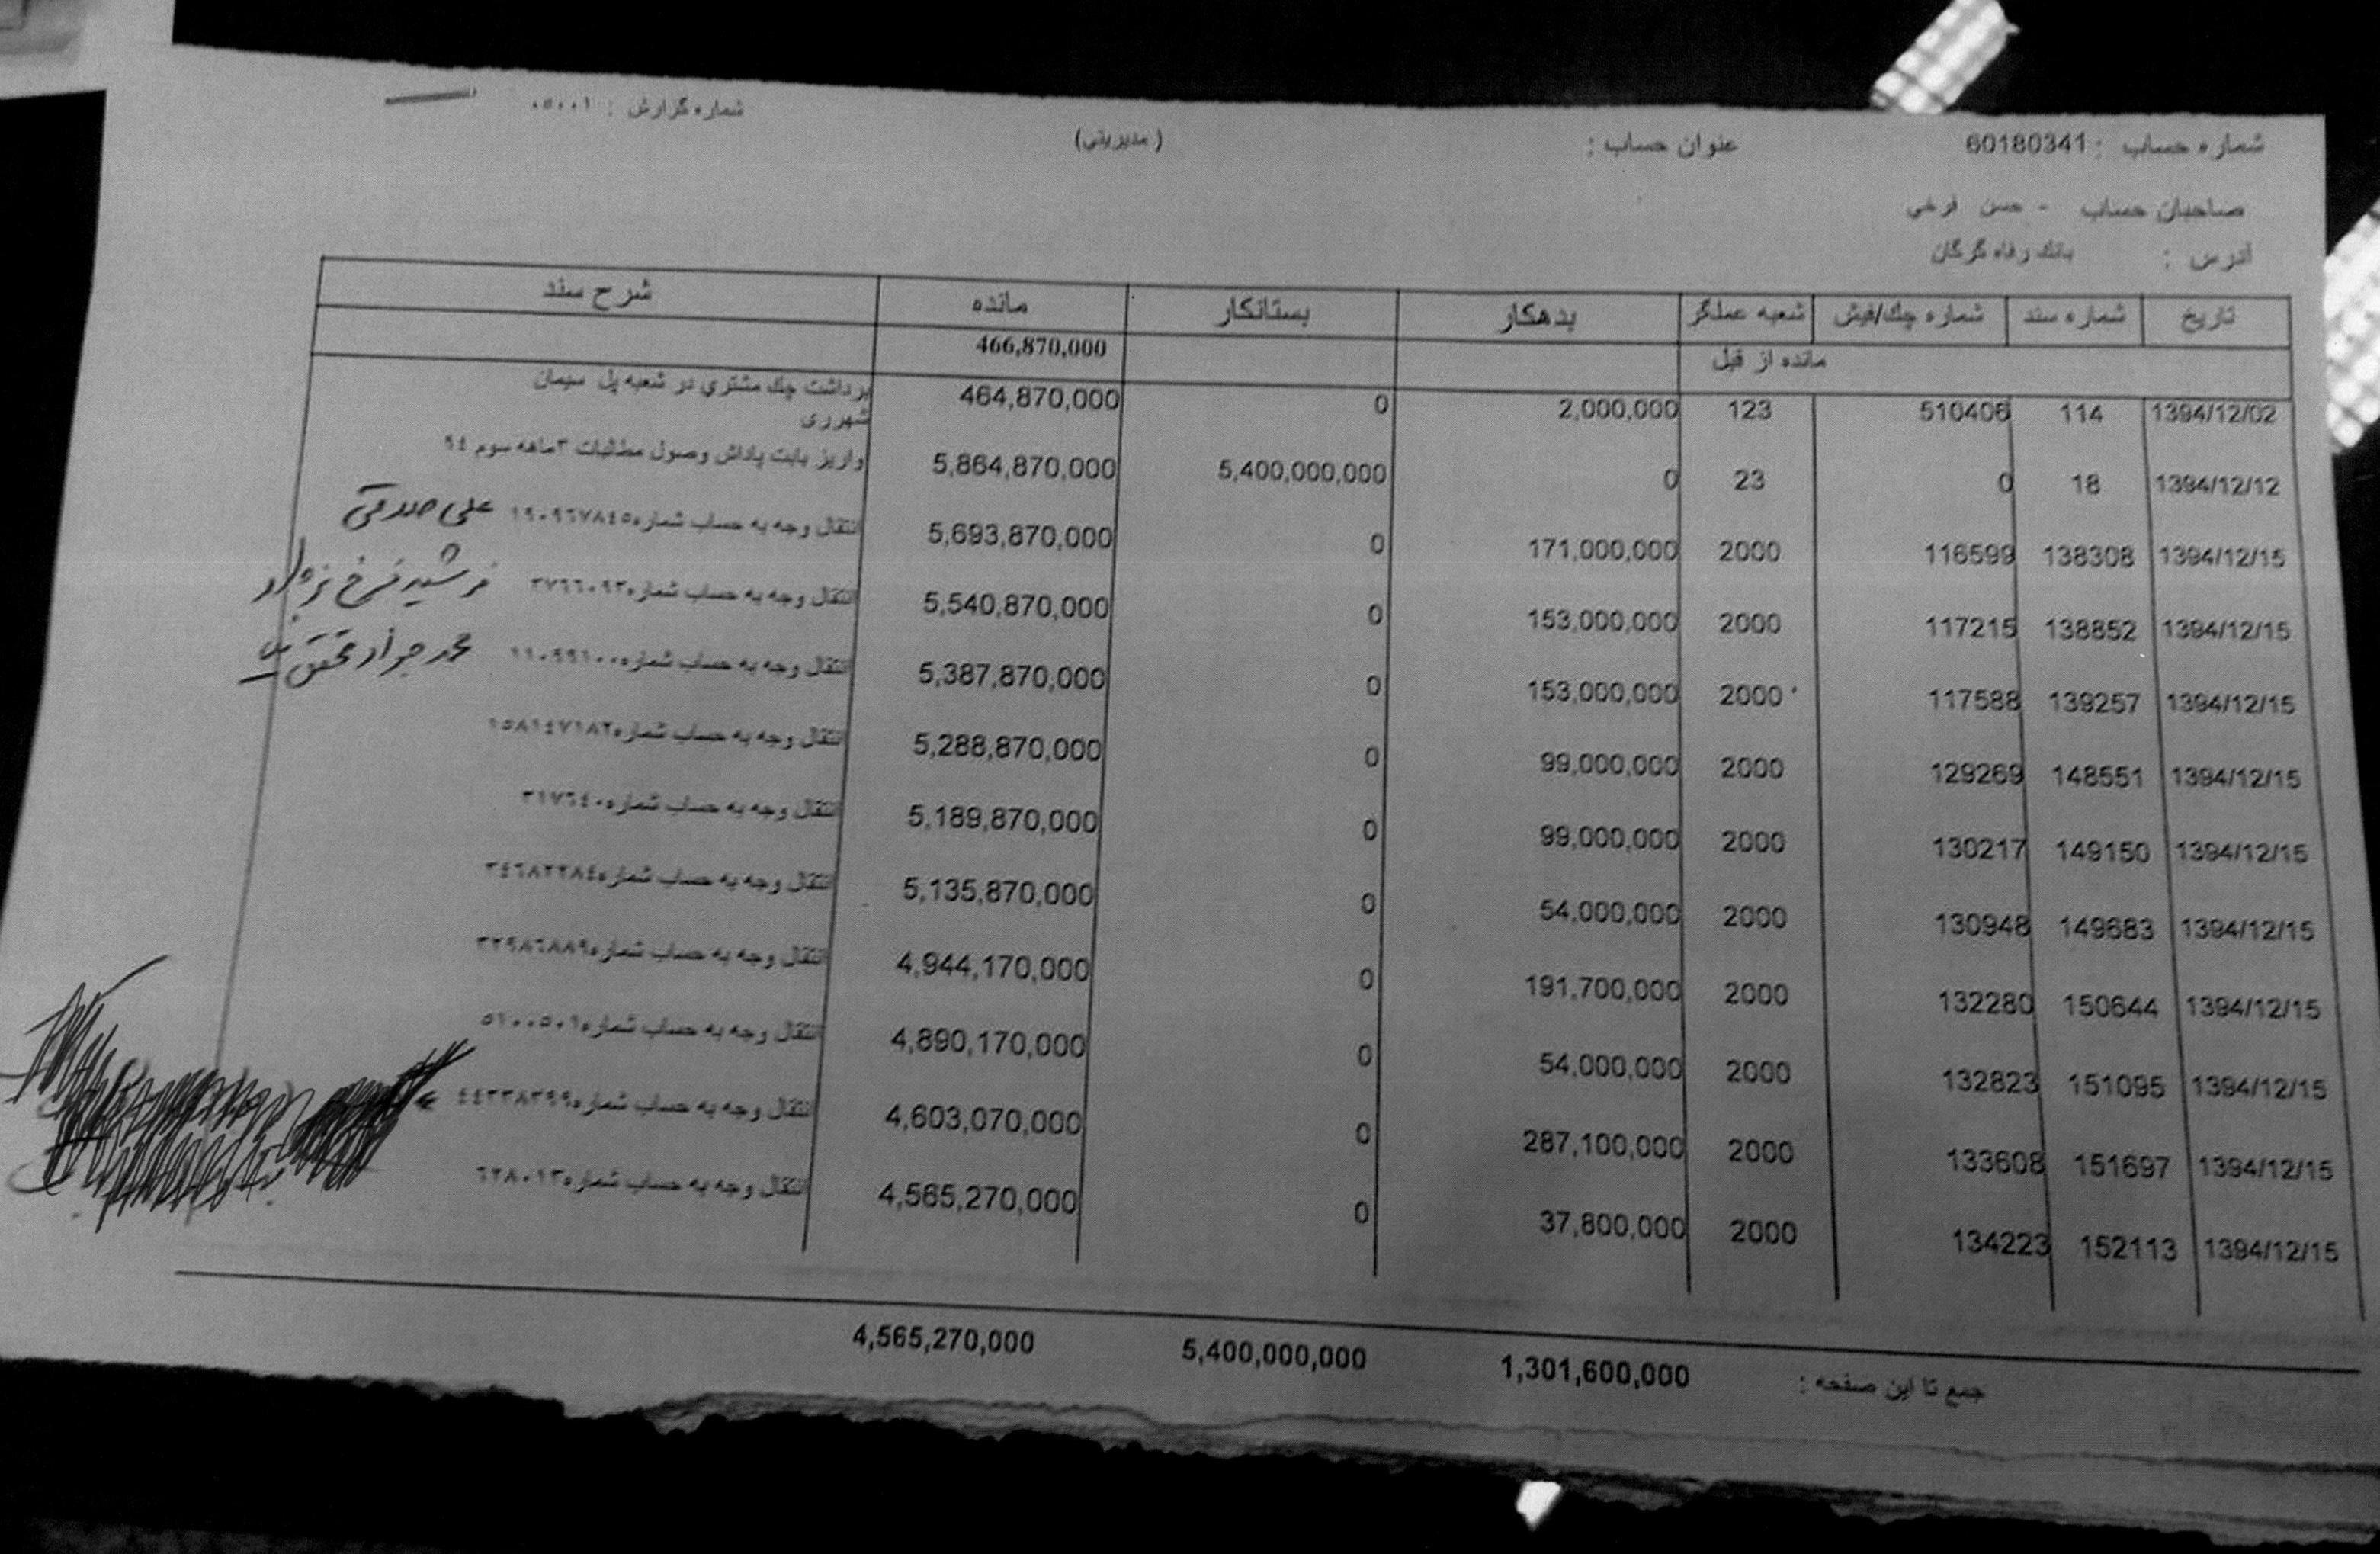 شماره حساب : 60180341 عنوان حساب : (مدیریتی) شماره گزارش : ۰۵۰۰۱
صاحبان حساب - حسن فرخي
آدرس : بانك رفاه گرگان
تاریخ شماره سند شماره چك/فیش شعبه عملگر بدهکار بستانکار مانده شرح سند
مانده از قبل 466,870,000
1394/12/02 114 510406 123 2,000,000 0 464,870,000 برداشت چك مشتري در شعبه پل سیمان
شهرری
1394/12/12 18 0 23 0 5,400,000,000 5,864,870,000 واریز بابت پاداش وصول مطالبات ۳ماهه سوم ۹٤
1394/12/15 138308 116599 2000 171,000,000 0 5,693,870,000 انتقال وجه به حساب شماره۱۹۰۹٦۷۸٤٥ علی صدقی
1394/12/15 138852 117215 2000 153,000,000 0 5,540,870,000 انتقال وجه به حساب شماره۳۷٦٦۰۹۳ فرشید فرخ نژاد
1394/12/15 139257 117588 2000 153,000,000 0 5,387,870,000 انتقال وجه به حساب شماره۱۱۰۹۹۱۰۰ محمد جواد محقق نیا
1394/12/15 148551 129269 2000 99,000,000 0 5,288,870,000 انتقال وجه به حساب شماره۱٥۸۱٤۷۱۸۲
1394/12/15 149150 130217 2000 99,000,000 0 5,189,870,000 انتقال وجه به حساب شماره۳۱۷٦٤۰
1394/12/15 149683 130948 2000 54,000,000 0 5,135,870,000 انتقال وجه به حساب شماره
1394/12/15 150644 132280 2000 191,700,000 0 4,944,170,000 انتقال وجه به حساب شماره
1394/12/15 151095 132823 2000 54,000,000 0 4,890,170,000 انتقال وجه به حساب شماره
1394/12/15 151697 133608 2000 287,100,000 0 4,603,070,000 انتقال وجه به حساب شماره٤٤۳۳۸۳۹۹
1394/12/15 152113 134223 2000 37,800,000 0 4,565,270,000 انتقال وجه به حساب شماره٦۲۸۰۱۳
جمع تا این صفحه : 1,301,600,000 5,400,000,000 4,565,270,000